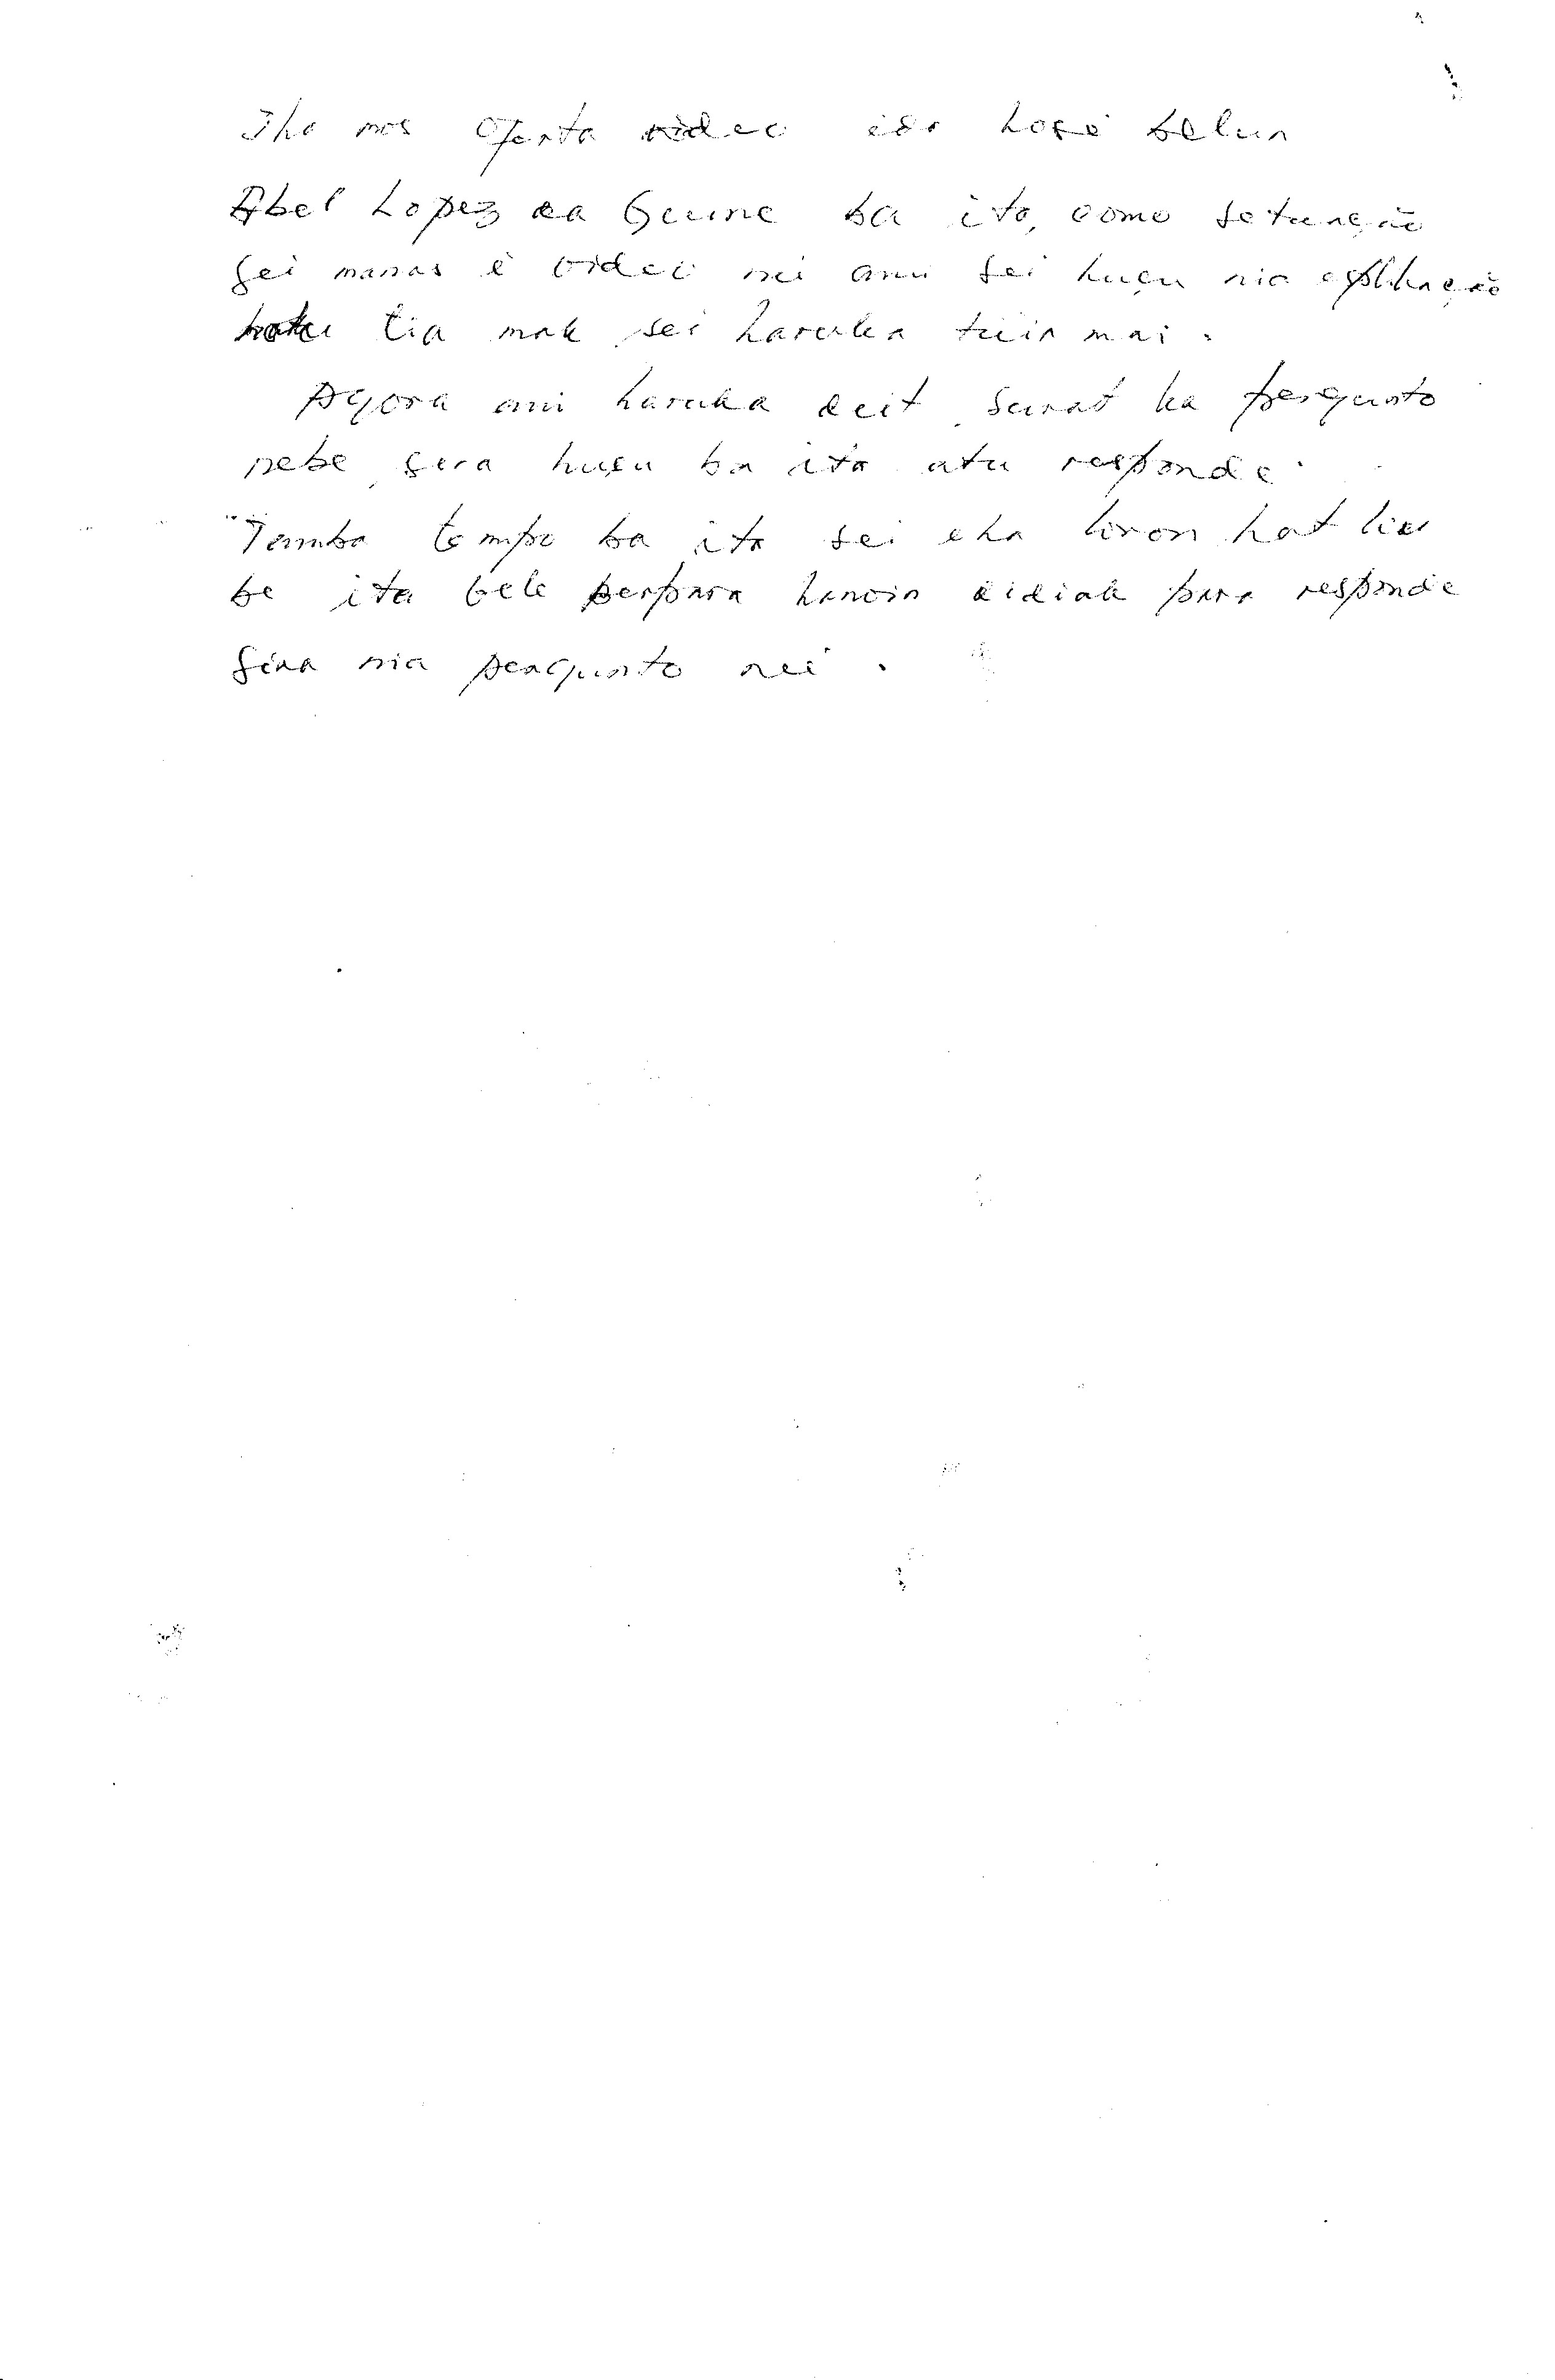 Iha mos oferta video ida hosi belun
Abel Lopez da Guine ba ita, como setuação
sei manas e video nei ami sei husu nia esplikação
tia mak sei haruka tuir mai.
Agora ami haruka deit surat ka pergunto
nebe sira husu ba ita atu responde.
Tamba tempo ba ita sei eha loron hat liu
be ita bele perpara hanoin didiak para responde
sira nia pergunto nei.